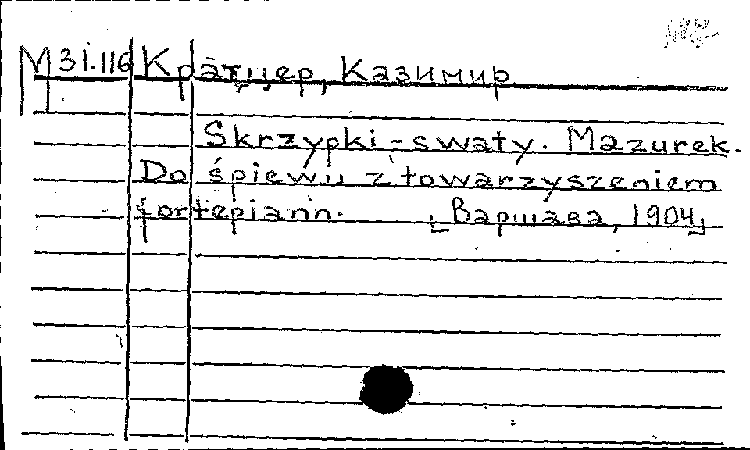 М 31.116 Кратцер, Казимир
Skrzypki-swaty. Mazurek.
Do śpiewu z towarzyszeniem
fortepiann. [Варшава, 1904]